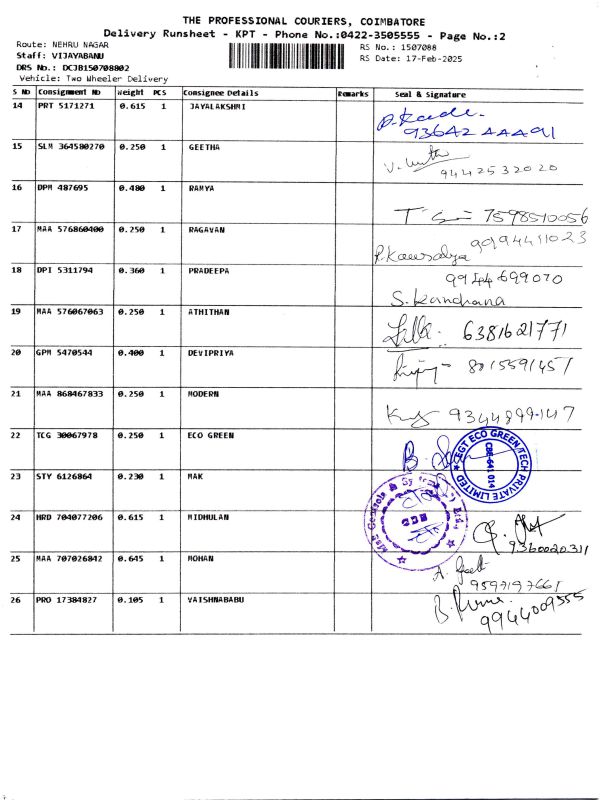 THE PROFESSIONAL COURIERS, COIMBATORE
Delivery Runsheet - KPT - Phone No.:0422-3505555 - Page No.:2
Route: NEHRU NAGAR
RS No.: 1507088
Staff: VIJAYABANU
RS Date: 17-Feb-2025
DRS No.: DCJB150708802
Vehicle: Two Wheeler Delivery
S No Consignment No Weight PCS Consignee Details Remarks Seal & Signature
14 PRT 5171271 0.615 1 JAYALAKSHMI
15 SLM 364580270 0.250 1 GEETHA
9442532020
16 DPM 487695 0.480 1 RAMYA
7598510056
17 MAA 576860400 0.250 1 RAGAVAN
P.Kowsalya 9994411023
18 DPI 5311794 0.360 1 PRADEEPA
9944699070
S.Kanchana
19 MAA 576067063 0.250 1 ATHITHAN
6381621771
20 GPM 5470544 0.400 1 DEVIPRIYA
8015591457
21 MAA 868467833 0.250 1 MODERN
22 TCG 30067978 0.250 1 ECO GREEN
EGT ECO GREEN TECH PRIVATE LIMITED
CBE-641 014
23 STY 6126864 0.230 1 MAK
24 HRD 704077206 0.615 1 MIDHULAN
9360020311
25 MAA 707026842 0.645 1 MOHAN
9597197661
26 PRO 17384827 0.105 1 VAISHNABABU
9944009555